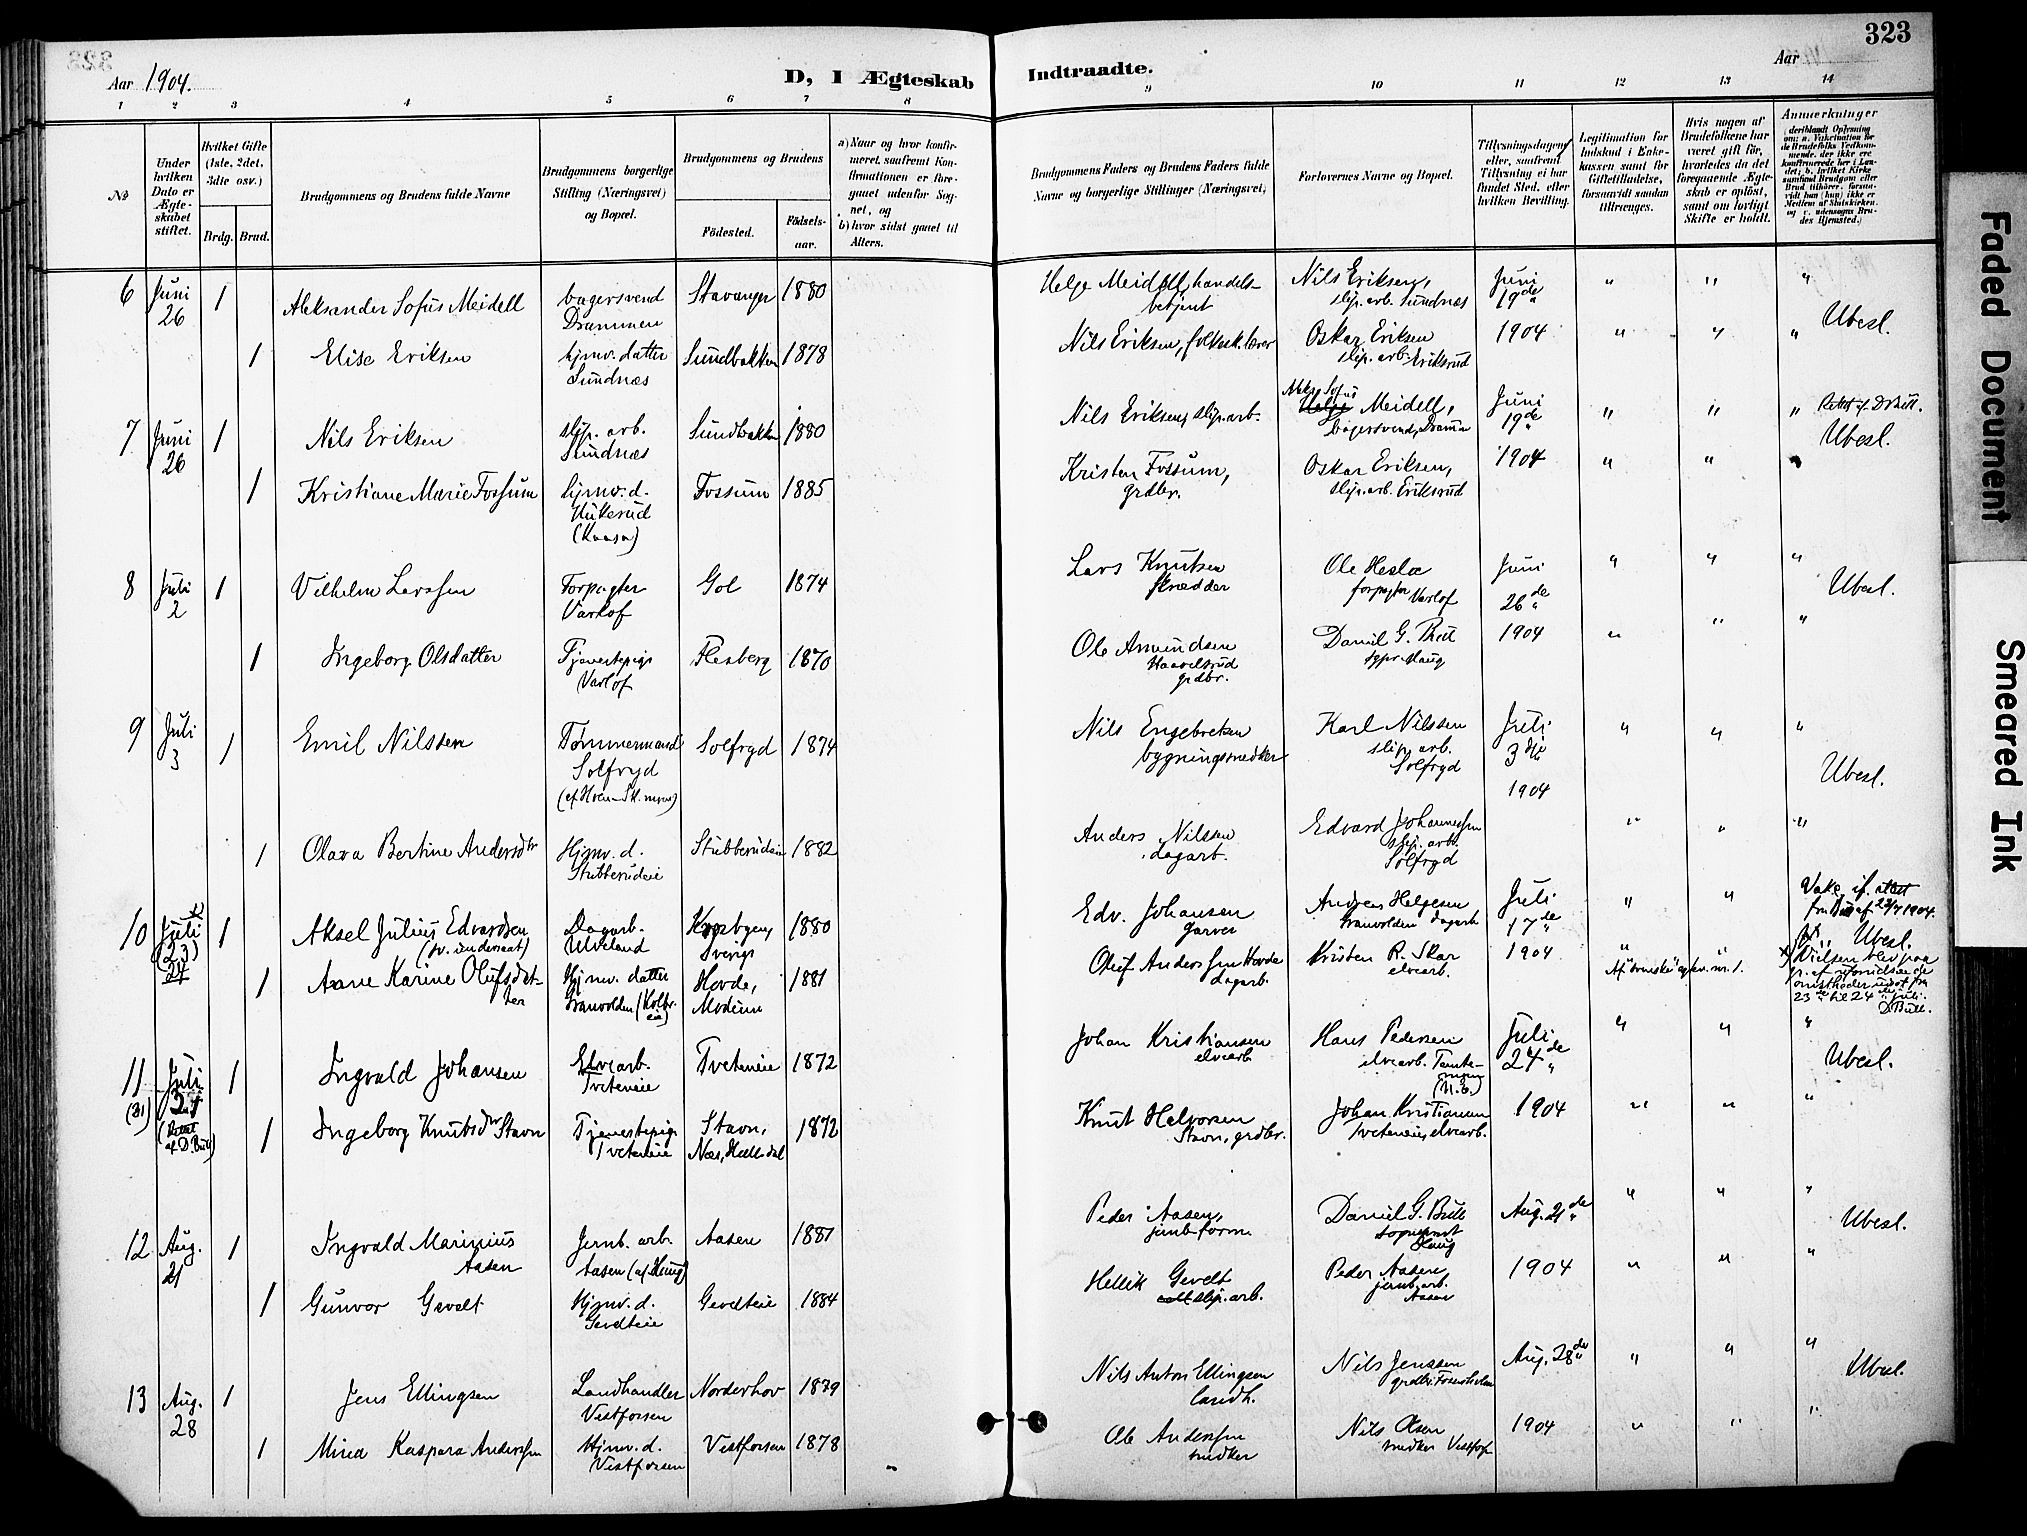 323
Aar 1904.
D, I Ægteskab Indtraadte.
Aar
1 2 3 4 5 6 7 8 9 10 11 12 13 14
№
Under hvilken Dato er Ægteskabet stiftet.
Hvilket Gifte (1ste, 2det, 3die osv.)
Brdg. Brud.
Brudgommens og Brudens fulde Navne
Brudgommens borgerlige Stilling (Næringsvei) og Bopæl.
Brudgommens og Brudens
Fødested. Fødselsaar.
a) Naar og hvor konfirmeret, saafremt Konfirmationen er foregaaet udenfor Sognet, og
b) hvor sidst gaaet til Alters.
Brudgommens Faders og Brudens Faders fulde Navne og borgerlige Stillinger (Næringsvei)
Forlovernes Navne og Bopæl.
Tillysningsdagene eller, saafremt Tillysning ei har fundet Sted, efter hvilken Bevilling.
Legitimation for Indskud i Enkekassen samt for Giftetilladelse, forsaavidt saadan tiltrænges.
Hvis nogen af Brudefolkene har været gift før, hvorledes da det foregaaende Ægteskab er opløst, samt om lovligt Skifte er holdt.
Anmærkninger
6 Juni 26 1 Aleksander Sofus Meidell bagersvend Drammen Stavanger 1880 Helge Meidell, handelsbetjent Nils Eriksen, slip. arb. Sundnæs Juni 19de " " "
1 Elise Eriksen hjmv. datter Sundnæs Sundbakken 1878 Nils Eriksen, folkesk.lærer Oskar Eriksen slip. arb. Eriksrud 1904 " " " Ubesl.
7 Juni 26 1 Nils Eriksen slip. arb. Sundnæs Sundbakken 1880 Nils Eriksen, slip. arb. Aleks. Sofus Helge Meidell, bagersvend, Dramn Juni 19de " " " Rettet af D Bull. Ubesl.
1 Kristiane Marie Fossum hjmv. d. Hukerud Fossum 1885 Kristen Fossum, grdbr. Oskar Eriksen, slip. arb. Eriksrud 1904 " " "
8 Juli 2 1 Vilhelm Larssen Forpagter Varlof Gol 1874 Lars Knutsen skrædder Ole Hesla forpagter Varlof Juni 26de " " " Ubesl.
1 Ingeborg Olsdatter Tjenestepige Varlof Flesberg 1870 Ole Amundsen Haavelsrud grdbr. Daniel G. Bull sgpr. Haug 1904 " " "
9 Juli 3 1 Emil Nilssen Tømmermand Solfryd Solfryd 1874 Nils Engebretsen bygningssnedker Karl Nilssen slip. arb. Solfryd Juli 3die 1904 " " " Ubesl.
1 Olava Bertine Andersdtr Hjmv. d. Stubberudeie Stubberudeie 1882 Anders Nilssen dagarb. Edvard Johannessen slip. arb. Solfryd " " "
10 Juli (23) 24 1 Aksel Julius Edvardsen (sv. undersaat) Dagarb. Ulveland Sverige 1880 Edv. Johansen garver Andreas Helgesen Granvolden dagarb. Juli 17de " "
1 Anne Karine Olufsdatter Hjmv. datter Granvolden Hovde, Modum 1881 Oluf Anderssen Hovde dagarb. Kristen R. Skar elvearb. 1904 " " Ubesl. Vielsen blev paa 23de til 24de Juli. D. Bull.
11 (31) Juli 24 (Rettet af D. Bull) 1 Ingvald Johansen Elvearb. Tveteneie Tveteneie 1872 Johan Kristiansen elvearb Hans Pedersen elvearb. Juli 24de " " " Ubesl.
1 Ingeborg Knutsdtr Stavn Tjenestepige Tveteneie Stavn, Næs, Halldal 1872 Knut Halvorsen Stavn, grdbr. Johan Kristiansen Tveteneie, elvearb. 1904 " " "
12 Aug. 21 1 Ingvald Marinius Aasen Jernb. arb. Aasen (af Haug) Aasen 1881 Peder Aasen, jernb. form. Daniel G. Bull sogneprest Haug Aug. 21de " " " Ubesl.
1 Gunvor Gevelt Hjmv. d. Gevelteie Gevelteie 1884 Hellik Gevelt slip. arb. Peder Aasen, jernb. arb. Aasen 1904 " " "
13 Aug. 28 1 Jens Ellingsen Landhandler Vestfossen Norderhov 1879 Nils Anton Ellingsen landh. Nils Jenssen grdbr. Fossesholm Aug. 28de " " " Ubesl.
1 Minea Kaspara Anderssen Hjmv. d. Vestfossen Vestfossen 1878 Ole Anderssen snedker Nils Olsen snedker Vestfos. 1904 " " "
Faded Document
Smeared Ink